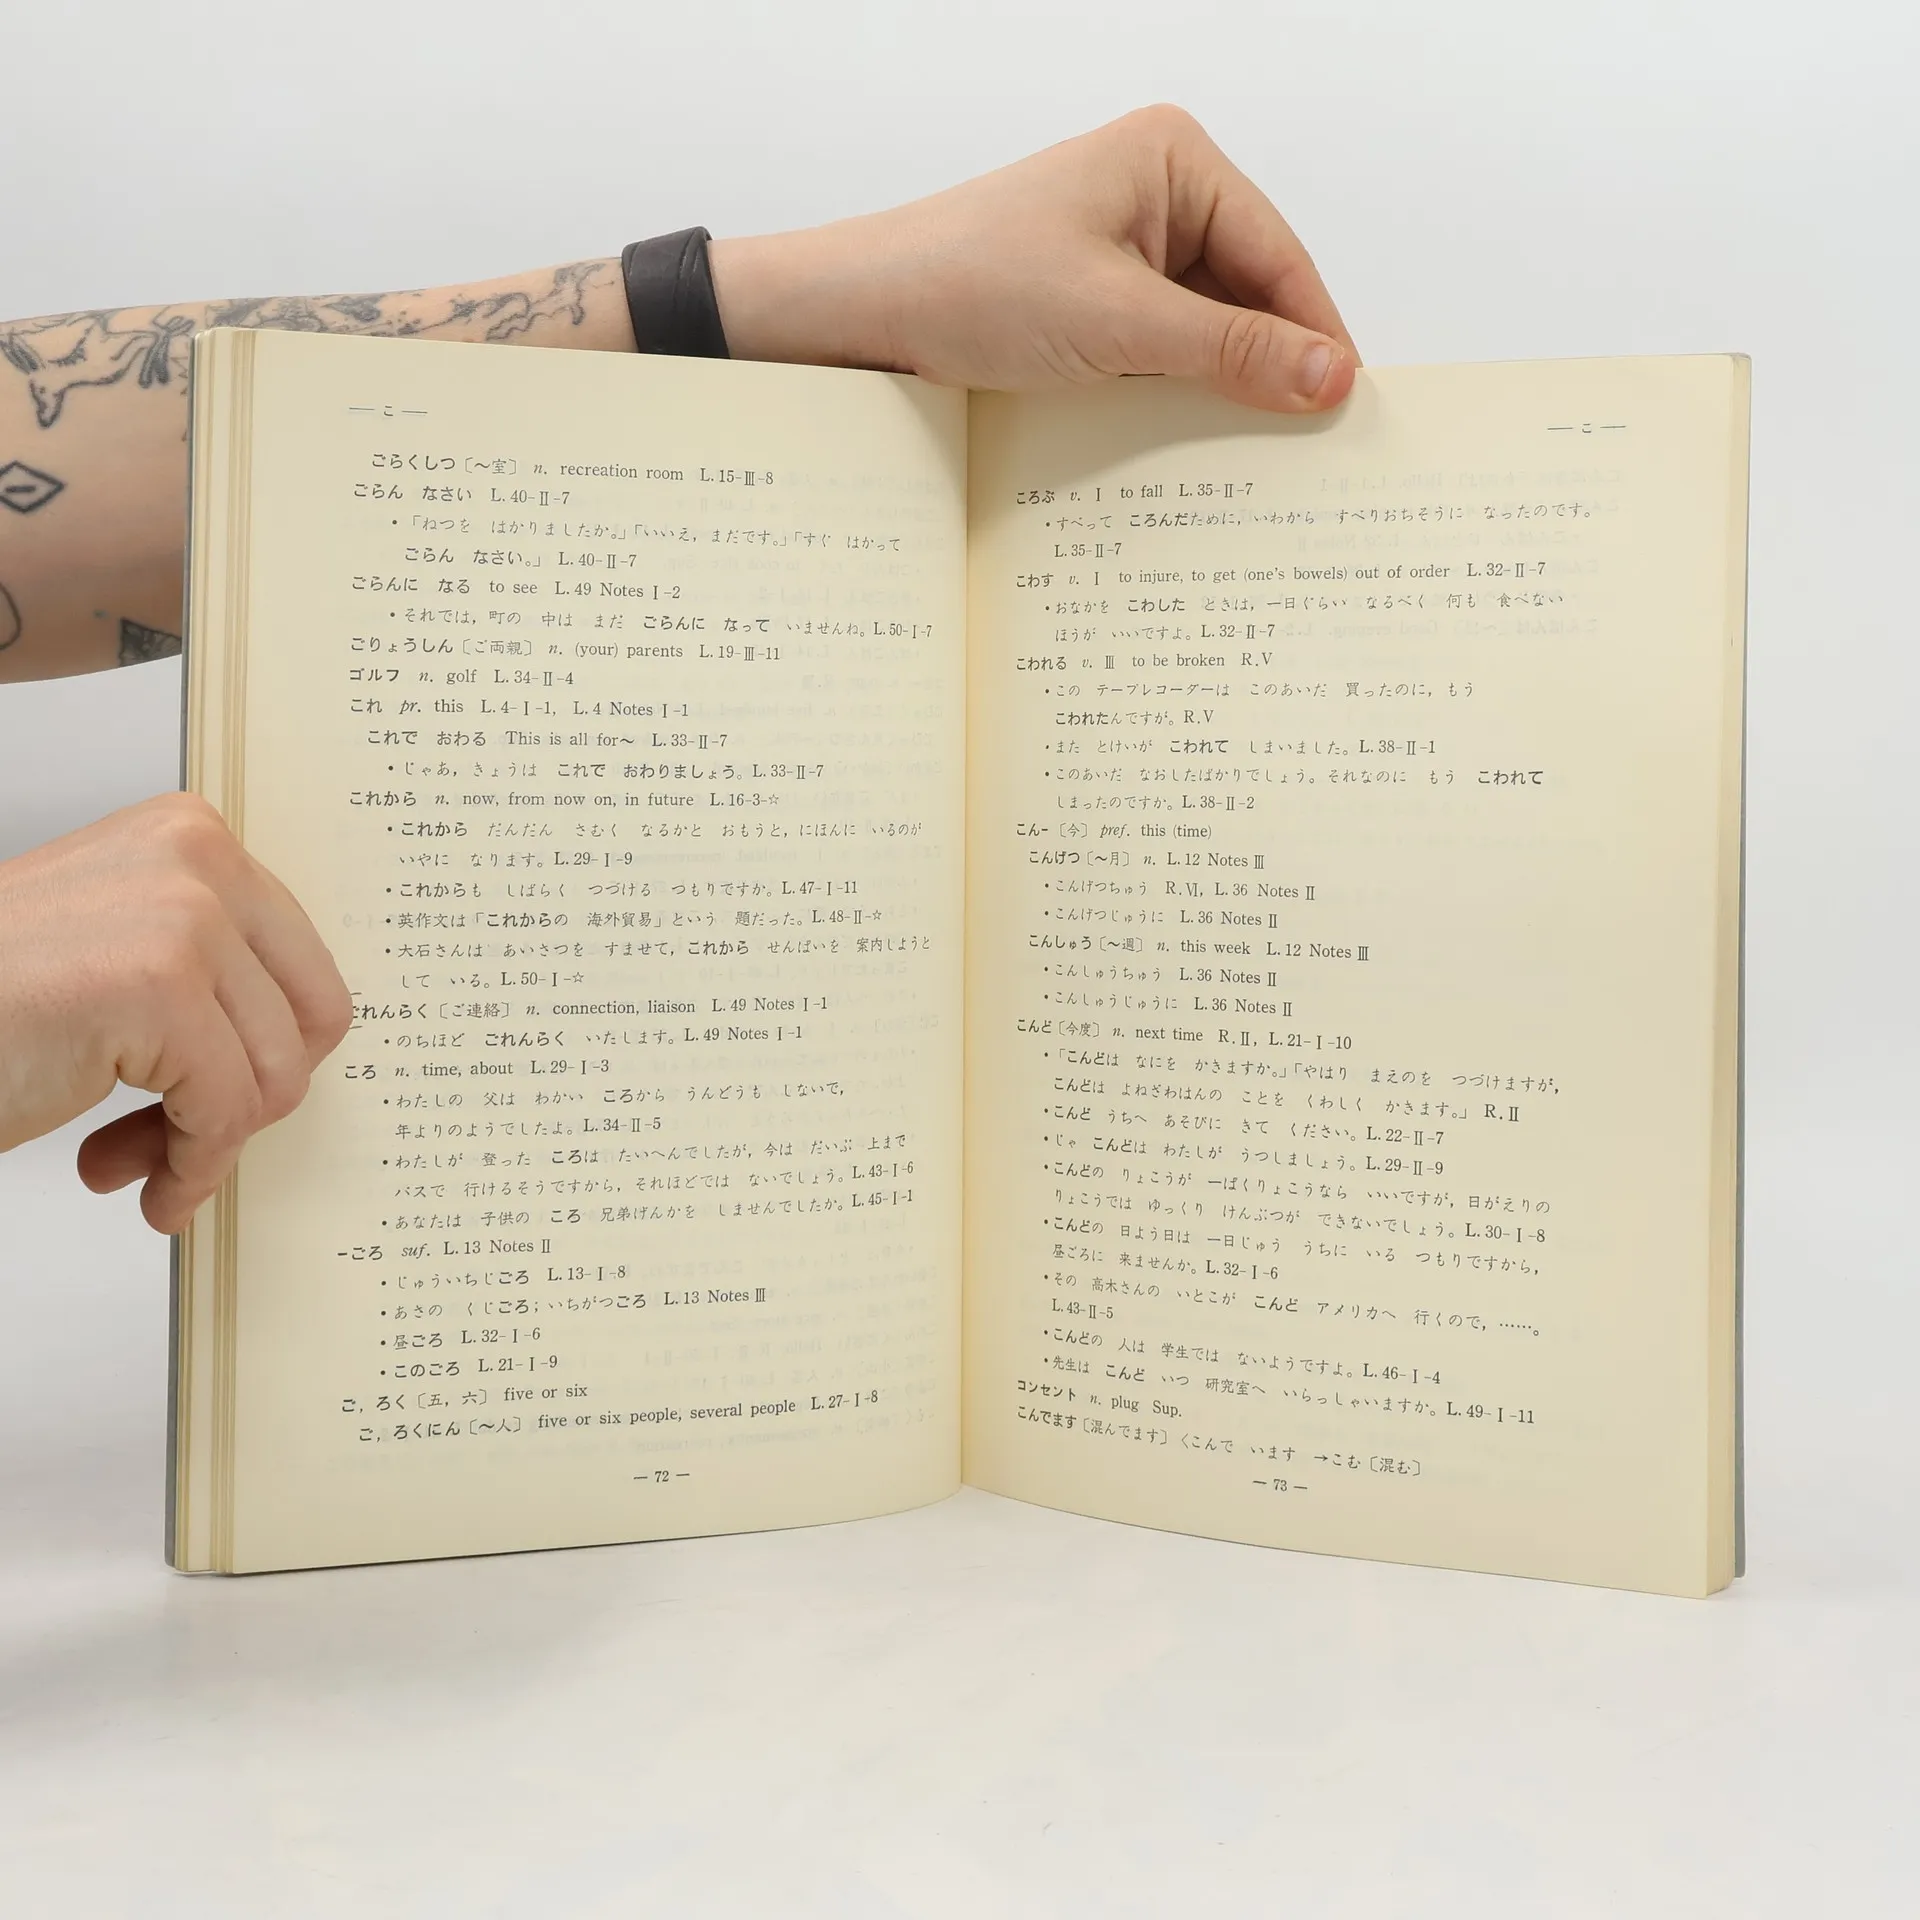 — こ —
ごらくしつ〔〜室〕 n. recreation room L.15-Ⅲ-8
ごらん なさい L.40-Ⅱ-7
・「ねつを はかりましたか。」「いいえ，まだです。」「すぐ はかって
ごらん なさい。」 L.40-Ⅱ-7
ごらんに なる to see L.49 Notes Ⅰ-2
・それでは，町の 中は まだ ごらんに なって いませんね。L.50-Ⅰ-7
ごりょうしん〔ご両親〕 n. (your) parents L.19-Ⅲ-11
ゴルフ n. golf L.34-Ⅱ-4
これ pr. this L.4-Ⅰ-1, L.4 Notes Ⅰ-1
これで おわる This is all for〜 L.33-Ⅱ-7
・じゃあ，きょうは これで おわりましょう。L.33-Ⅱ-7
これから n. now, from now on, in future L.16-3-☆
・これから だんだん さむく なるかと おもうと，にほんに いるのが
いやに なります。L.29-Ⅰ-9
・これからも しばらく つづける つもりですか。L.47-Ⅰ-11
・英作文は「これからの 海外貿易」という 題だった。L.48-Ⅱ-☆
・大石さんは あいさつを すませて，これから せんぱいを 案内しようと
して いる。L.50-Ⅰ-☆
ごれんらく〔ご連絡〕 n. connection, liaison L.49 Notes Ⅰ-1
・のちほど ごれんらく いたします。L.49 Notes Ⅰ-1
ころ n. time, about L.29-Ⅰ-3
・わたしの 父は わかい ころから うんどうも しないで，
年よりのようでしたよ。L.34-Ⅱ-5
・わたしが 登った ころは たいへんでしたが，今は だいぶ 上まで
バスで 行けるそうですから，それほどでは ないでしょう。L.43-Ⅰ-6
・あなたは 子供の ころ 兄弟げんかを しませんでしたか。L.45-Ⅰ-1
－ごろ suf. L.13 Notes Ⅱ
・じゅういちじごろ L.13-Ⅰ-8
・あさの くじごろ；いちがつごろ L.13 Notes Ⅲ
・昼ごろ L.32-Ⅰ-6
・このごろ L.21-Ⅰ-9
ご，ろく〔五，六〕 five or six
ご，ろくにん〔〜人〕 five or six people, several people L.27-Ⅰ-8
— 72 —
— こ —
ころぶ v. Ⅰ to fall L.35-Ⅱ-7
・すべって ころんだために，いわから すべりおちそうに なったのです。
L.35-Ⅱ-7
こわす v. Ⅰ to injure, to get (one's bowels) out of order L.32-Ⅱ-7
・おなかを こわした ときは，一日ぐらい なるべく 何も 食べない
ほうが いいですよ。L.32-Ⅱ-7
こわれる v. Ⅲ to be broken R.Ⅴ
・この テープレコーダーは このあいだ 買ったのに，もう
こわれたんですが。R.Ⅴ
・また とけいが こわれて しまいました。L.38-Ⅱ-1
・このあいだ なおしたばかりでしょう。それなのに もう こわれて
しまったのですか。L.38-Ⅱ-2
こん-〔今〕 pref. this (time)
こんげつ〔〜月〕 n. L.12 Notes Ⅲ
・こんげつちゅう R.Ⅵ, L.36 Notes Ⅱ
・こんげつじゅうに L.36 Notes Ⅱ
こんしゅう〔〜週〕 n. this week L.12 Notes Ⅲ
・こんしゅうちゅう L.36 Notes Ⅱ
・こんしゅうじゅうに L.36 Notes Ⅱ
こんど〔今度〕 n. next time R.Ⅱ, L.21-Ⅰ-10
・「こんどは なにを かきますか。」「やはり まえのを つづけますが，
こんどは よねざわはんの ことを くわしく かきます。」 R.Ⅱ
・こんど うちへ あそびに きて ください。L.22-Ⅱ-7
・じゃ こんどは わたしが うつしましょう。L.29-Ⅱ-9
・こんどの りょこうが 一ぱくりょこうなら いいですが，日がえりの
りょこうでは ゆっくり けんぶつが できないでしょう。L.30-Ⅰ-8
・こんどの 日よう日は 一日じゅう うちに いる つもりですから，
昼ごろに 来ませんか。L.32-Ⅰ-6
・その 高木さんの いとこが こんど アメリカへ 行くので，……。
L.43-Ⅱ-5
・こんどの 人は 学生では ないようですよ。L.46-Ⅰ-4
・先生は こんど いつ 研究室へ いらっしゃいますか。L.49-Ⅰ-11
コンセント n. plug Sup.
こんでます〔混んでます〕くこんで います →こむ〔混む〕
— 73 —